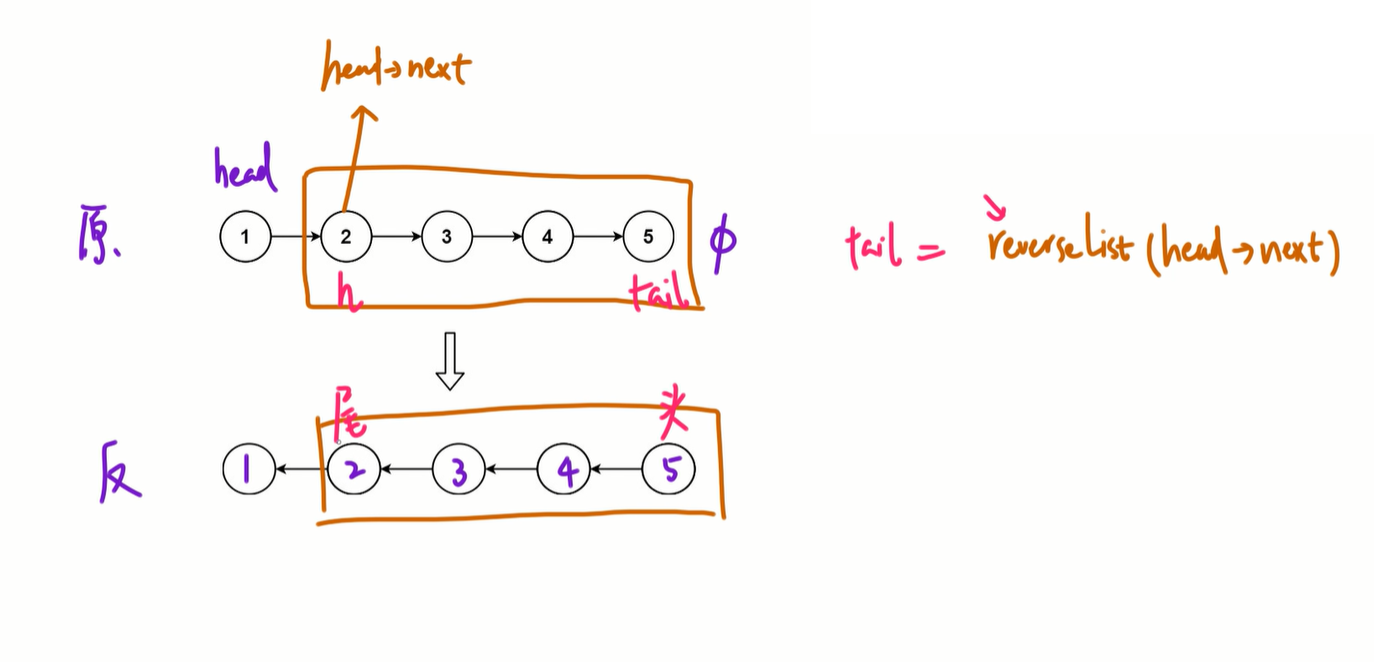 head→next
head
原.
1 2 3 4 5 φ
h tail
tail = reverselist (head→next)
尾 头
反
1 2 3 4 5